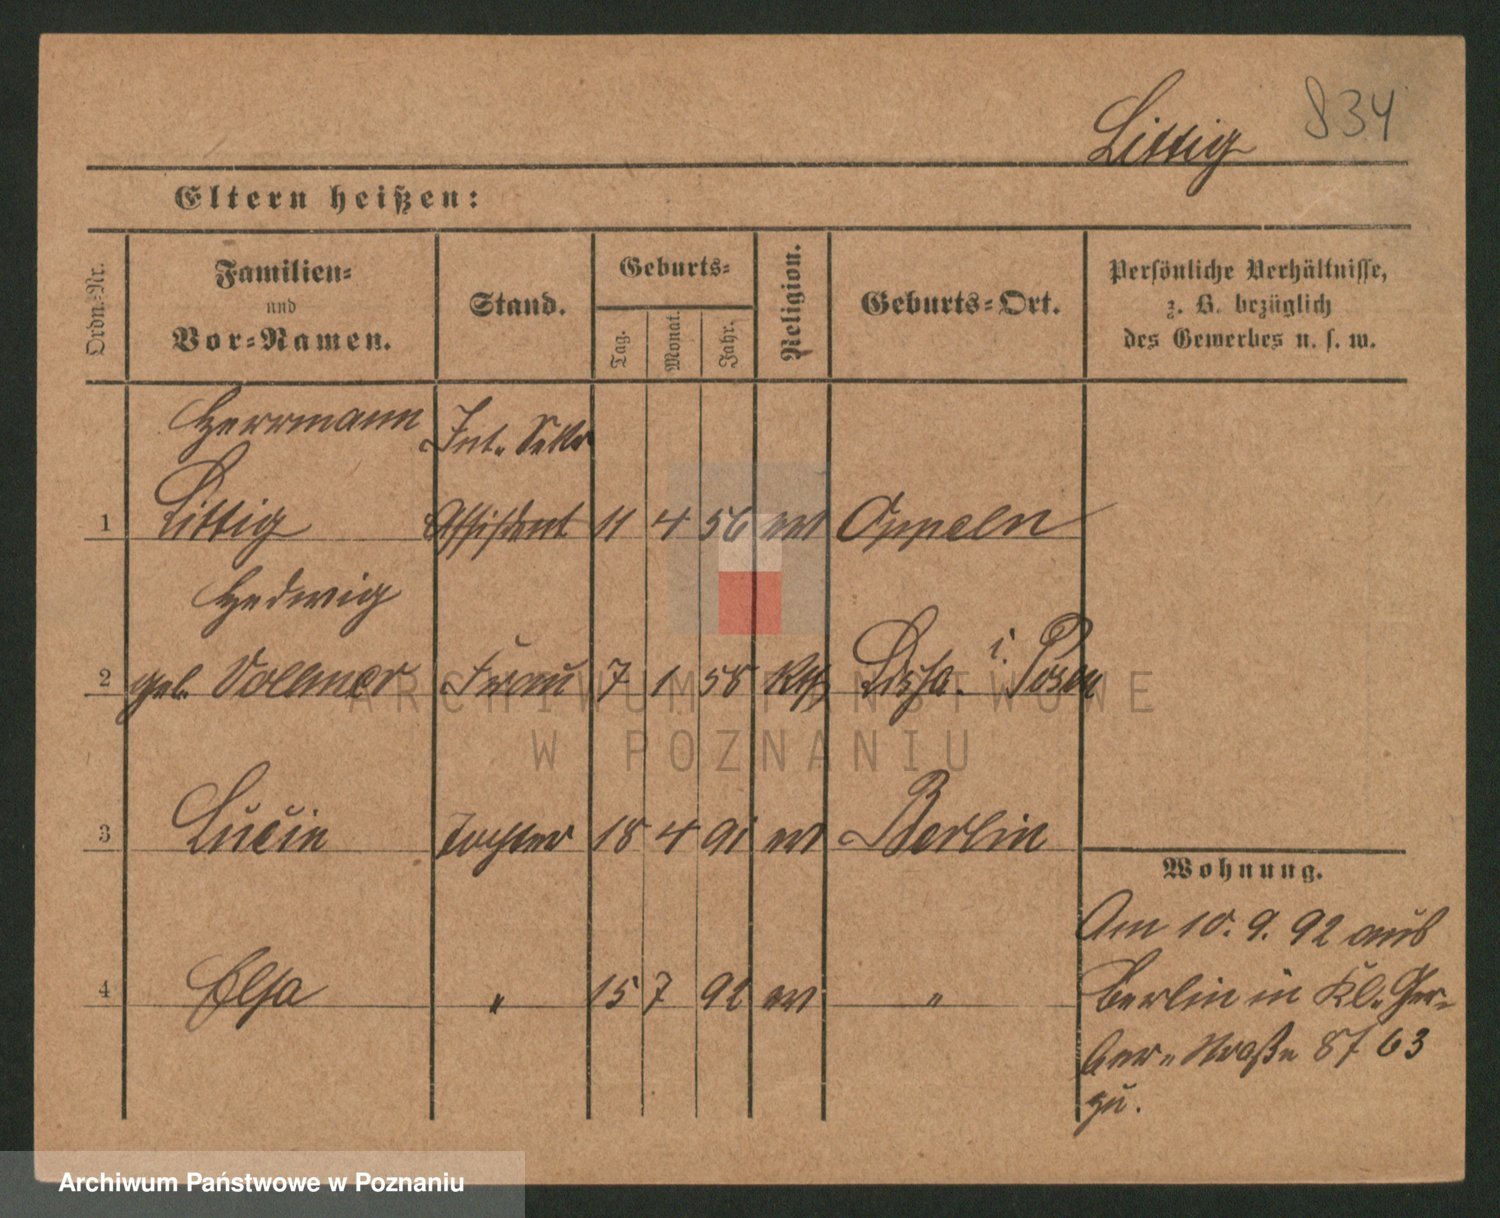 Littig 834
Eltern heißen:
Ordn.-Nr.
Familien-
und
Vor-Namen.
Stand.
Geburts-
Tag.
Monat.
Jahr.
Religion.
Geburts-Ort.
Persönliche Verhältnisse,
z. B. bezüglich
des Gewerbes u. s. w.
Herrmann Int. Sekr
1 Littig Assistent 11 4 56 ev Oppeln
Hedwig
2 geb. Vollmer Frau 7 1 58 Kth Lissa i. Posen
3 Lucie Tochter 18 4 91 ev Berlin
Wohnung.
Am 10. 9. 92 aus
4 Elsa " 15 7 92 ev "
Berlin in Kl. Ger-
ber-Straße 8/ 63
zu.
ARCHIWUM PAŃSTWOWE
W POZNANIU
Archiwum Państwowe w Poznaniu